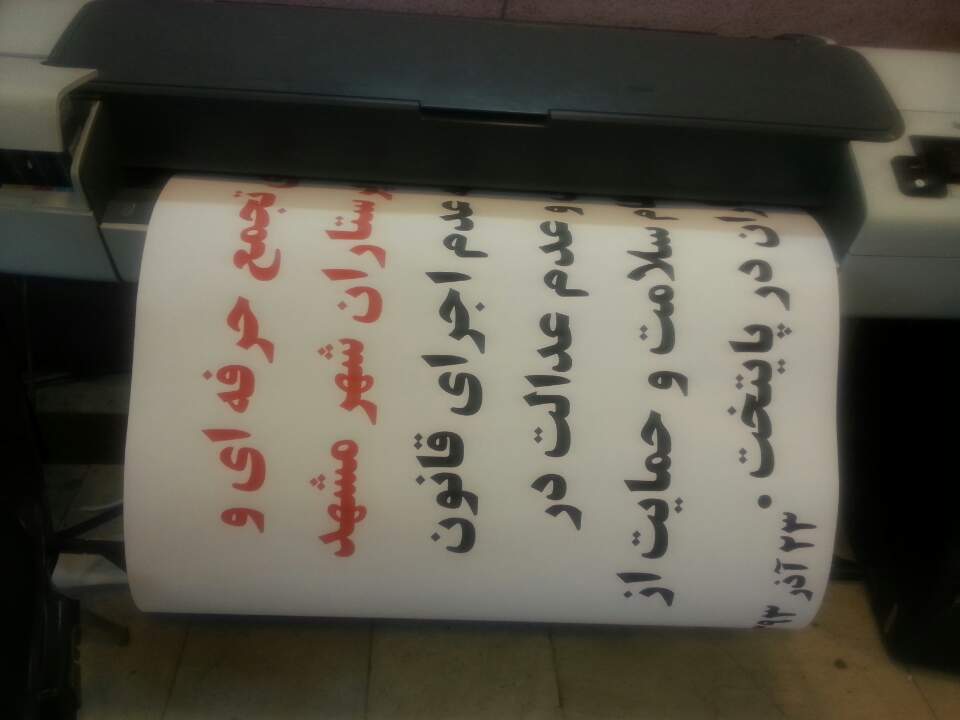 تجمع حرفه ای و
پرستاران شهر مشهد
عدم اجرای قانون
و عدم عدالت در
سلامت و حمایت از
در پایتخت .
۲۳ آذر